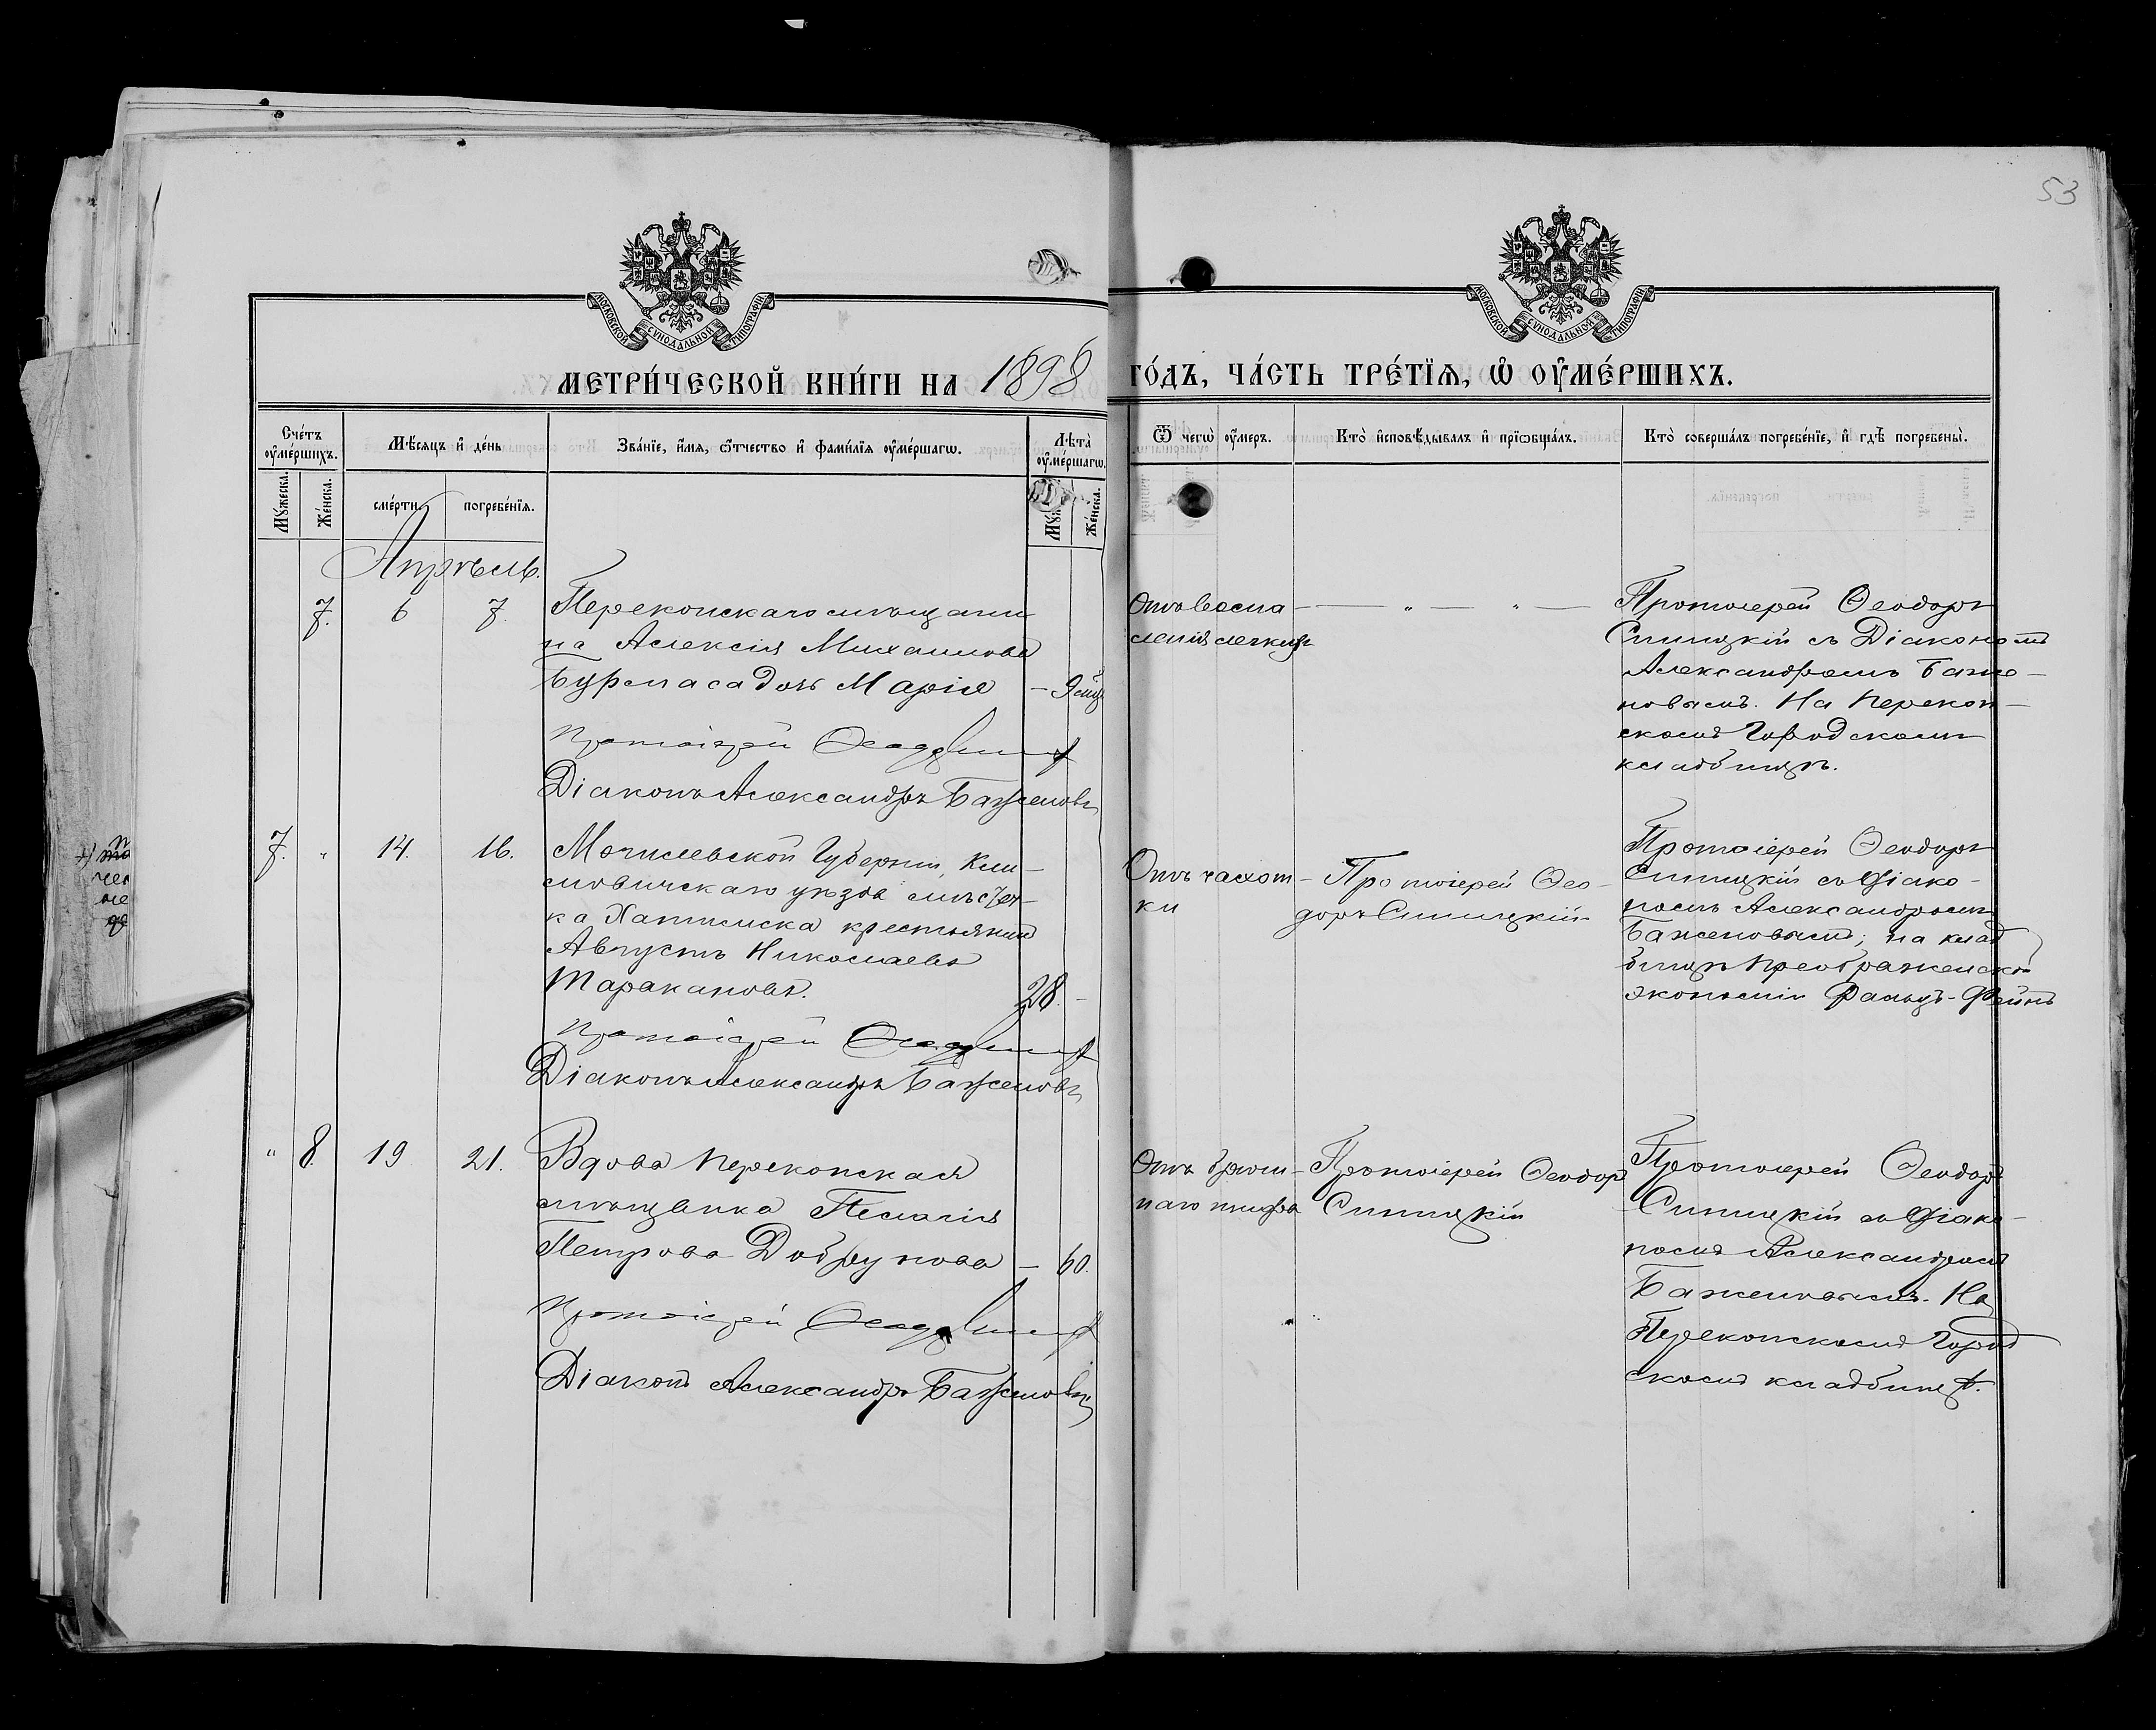 53
МОСКОВСКОЙ СУНОДАЛЬНОЙ ТИПОГРАФІИ
МОСКОВСКОЙ СУНОДАЛЬНОЙ ТИПОГРАФІИ
МЕТРИ́ЧЕСКОЙ КНИ́ГИ НА 1898 ГО́ДЪ, ЧА́СТЬ ТРЕ́ТЇѦ, Ѡ҆ ОУ҆МЕ́РШИХЪ.
Сче́тъ оу҆ме́ршихъ.
Мꙋ́жеска.
Же́нска.
Мѣ́сяцъ и҆ де́нь
сме́рти.
погребе́нїя.
Зва́нїе, и҆́мя, ѻ҆́тчество и҆ фами́лїя оу҆ме́ршагѡ.
Лѣ́та оу҆ме́ршагѡ.
Мꙋ́
Же́нска.
Ѿ чегѡ̀ оу҆́меръ.
Кто̀ и҆сповѣ́дывалъ и҆ прїѡбща́лъ.
Кто̀ соверша́лъ погребе́нїе, и҆ гдѣ̀ погребены̀.
Апрѣль.
7. 6 7. Перекопскаго мѣщани
на Алексія Михаилова
Бурмаса дочь Марія — 9 мц.
Протоіерей Ѳеодоръ
Діаконъ Александръ Баженовъ
Отъ воспа
ленія легкихъ
Протоіерей Ѳеодоръ
Синицкій съ Діакономъ
Александромъ Баже-
новымъ. На Перекоп-
скомъ Городскомъ
кладбищѣ.
7. " 14. 16. Могилевской Губерніи, Кли-
мовичскаго уѣзда мѣстеч-
ка Хатимска крестьянинъ
Августъ Николаевъ
Таракановъ. 28. -
Протоіерей Ѳеодоръ
Діаконъ Александръ Баженовъ
Отъ чахот-
ки
Протоіерей Ѳео-
доръ Синицкій
Протоіерей Ѳеодоръ
Синицкій съ Діако-
номъ Александромъ
Баженовымъ; на клад
бищѣ Преображенской
экономіи Фальцъ-Фейнъ
" 8. 19 21. Вдова Перекопская
мѣщанка Пелагія
Петрова Добрунова — 60.
Протоіерей Ѳеодоръ
Діаконъ Александръ Баженовъ
Отъ брюш-
наго тифа
Протоіерей Ѳеодоръ
Синицкій
Протоіерей Ѳеодоръ
Синицкій съ Діако-
номъ Александромъ
Баженовымъ. На
Перекопскомъ Город
скомъ кладбищѣ.